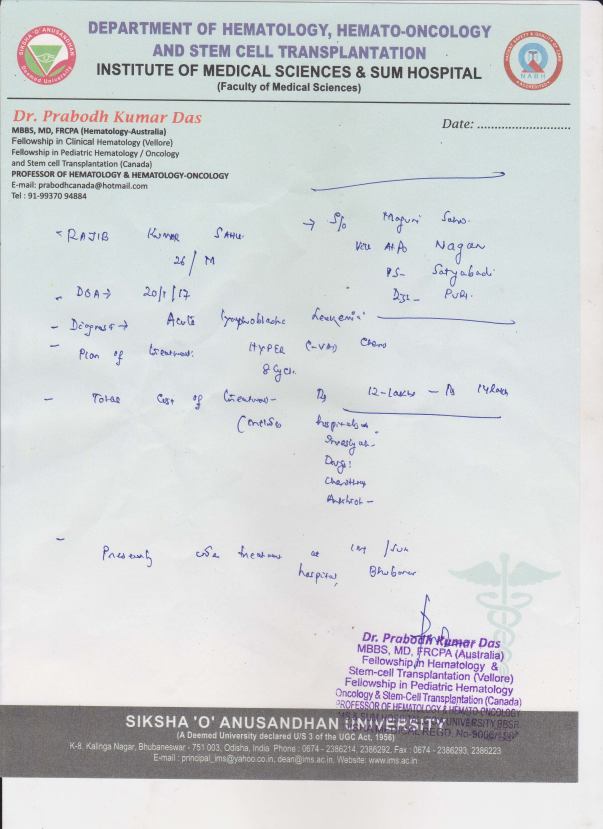 SIKSHA 'O' ANUSANDHAN
Deemed University
DEPARTMENT OF HEMATOLOGY, HEMATO-ONCOLOGY
AND STEM CELL TRANSPLANTATION
INSTITUTE OF MEDICAL SCIENCES & SUM HOSPITAL
(Faculty of Medical Sciences)
NABH
Dr. Prabodh Kumar Das
MBBS, MD, FRCPA (Hematology-Australia)
Fellowship in Clinical Hematology (Vellore)
Fellowship in Pediatric Hematology / Oncology
and Stem cell Transplantation (Canada)
PROFESSOR OF HEMATOLOGY & HEMATOLOGY-ONCOLOGY
E-mail: prabodhcanada@hotmail.com
Tel : 91-99370 94884
Date: ............................
RAJIB KUMAR SAHU
26/M
→ S/o Maguni Sahoo
At/Po Nagan
PS- Satyabadi
Dist- PURI.
- DOA → 20/1/17
- Diagnosis → Acute lymphoblastic Leukemia
- Plan of treatment: HYPER C-VAD Chemo
8 Cycle
- Total Cost of treatment - Rs 12-lakhs - Rs 14 lakhs
hospital
Drugs
- Presently under treatment at IMS/SUM
hospital, Bhubaneswar
Dr. Prabodh Kumar Das
MBBS, MD, FRCPA (Australia)
Fellowship in Hematology &
Stem-cell Transplantation (Vellore)
Fellowship in Pediatric Hematology
Oncology & Stem-Cell Transplantation (Canada)
PROFESSOR OF HEMATOLOGY & HEMATO-ONCOLOGY
SIKSHA 'O' ANUSANDHAN UNIVERSITY
(A Deemed University declared U/S 3 of the UGC Act, 1956)
K-8, Kalinga Nagar, Bhubaneswar - 751 003, Odisha, India Phone : 0674 - 2386214, 2386292, Fax : 0674 - 2386293, 2386223
E-mail : principal_ims@yahoo.co.in, dean@ims.ac.in, Website: www.ims.ac.in